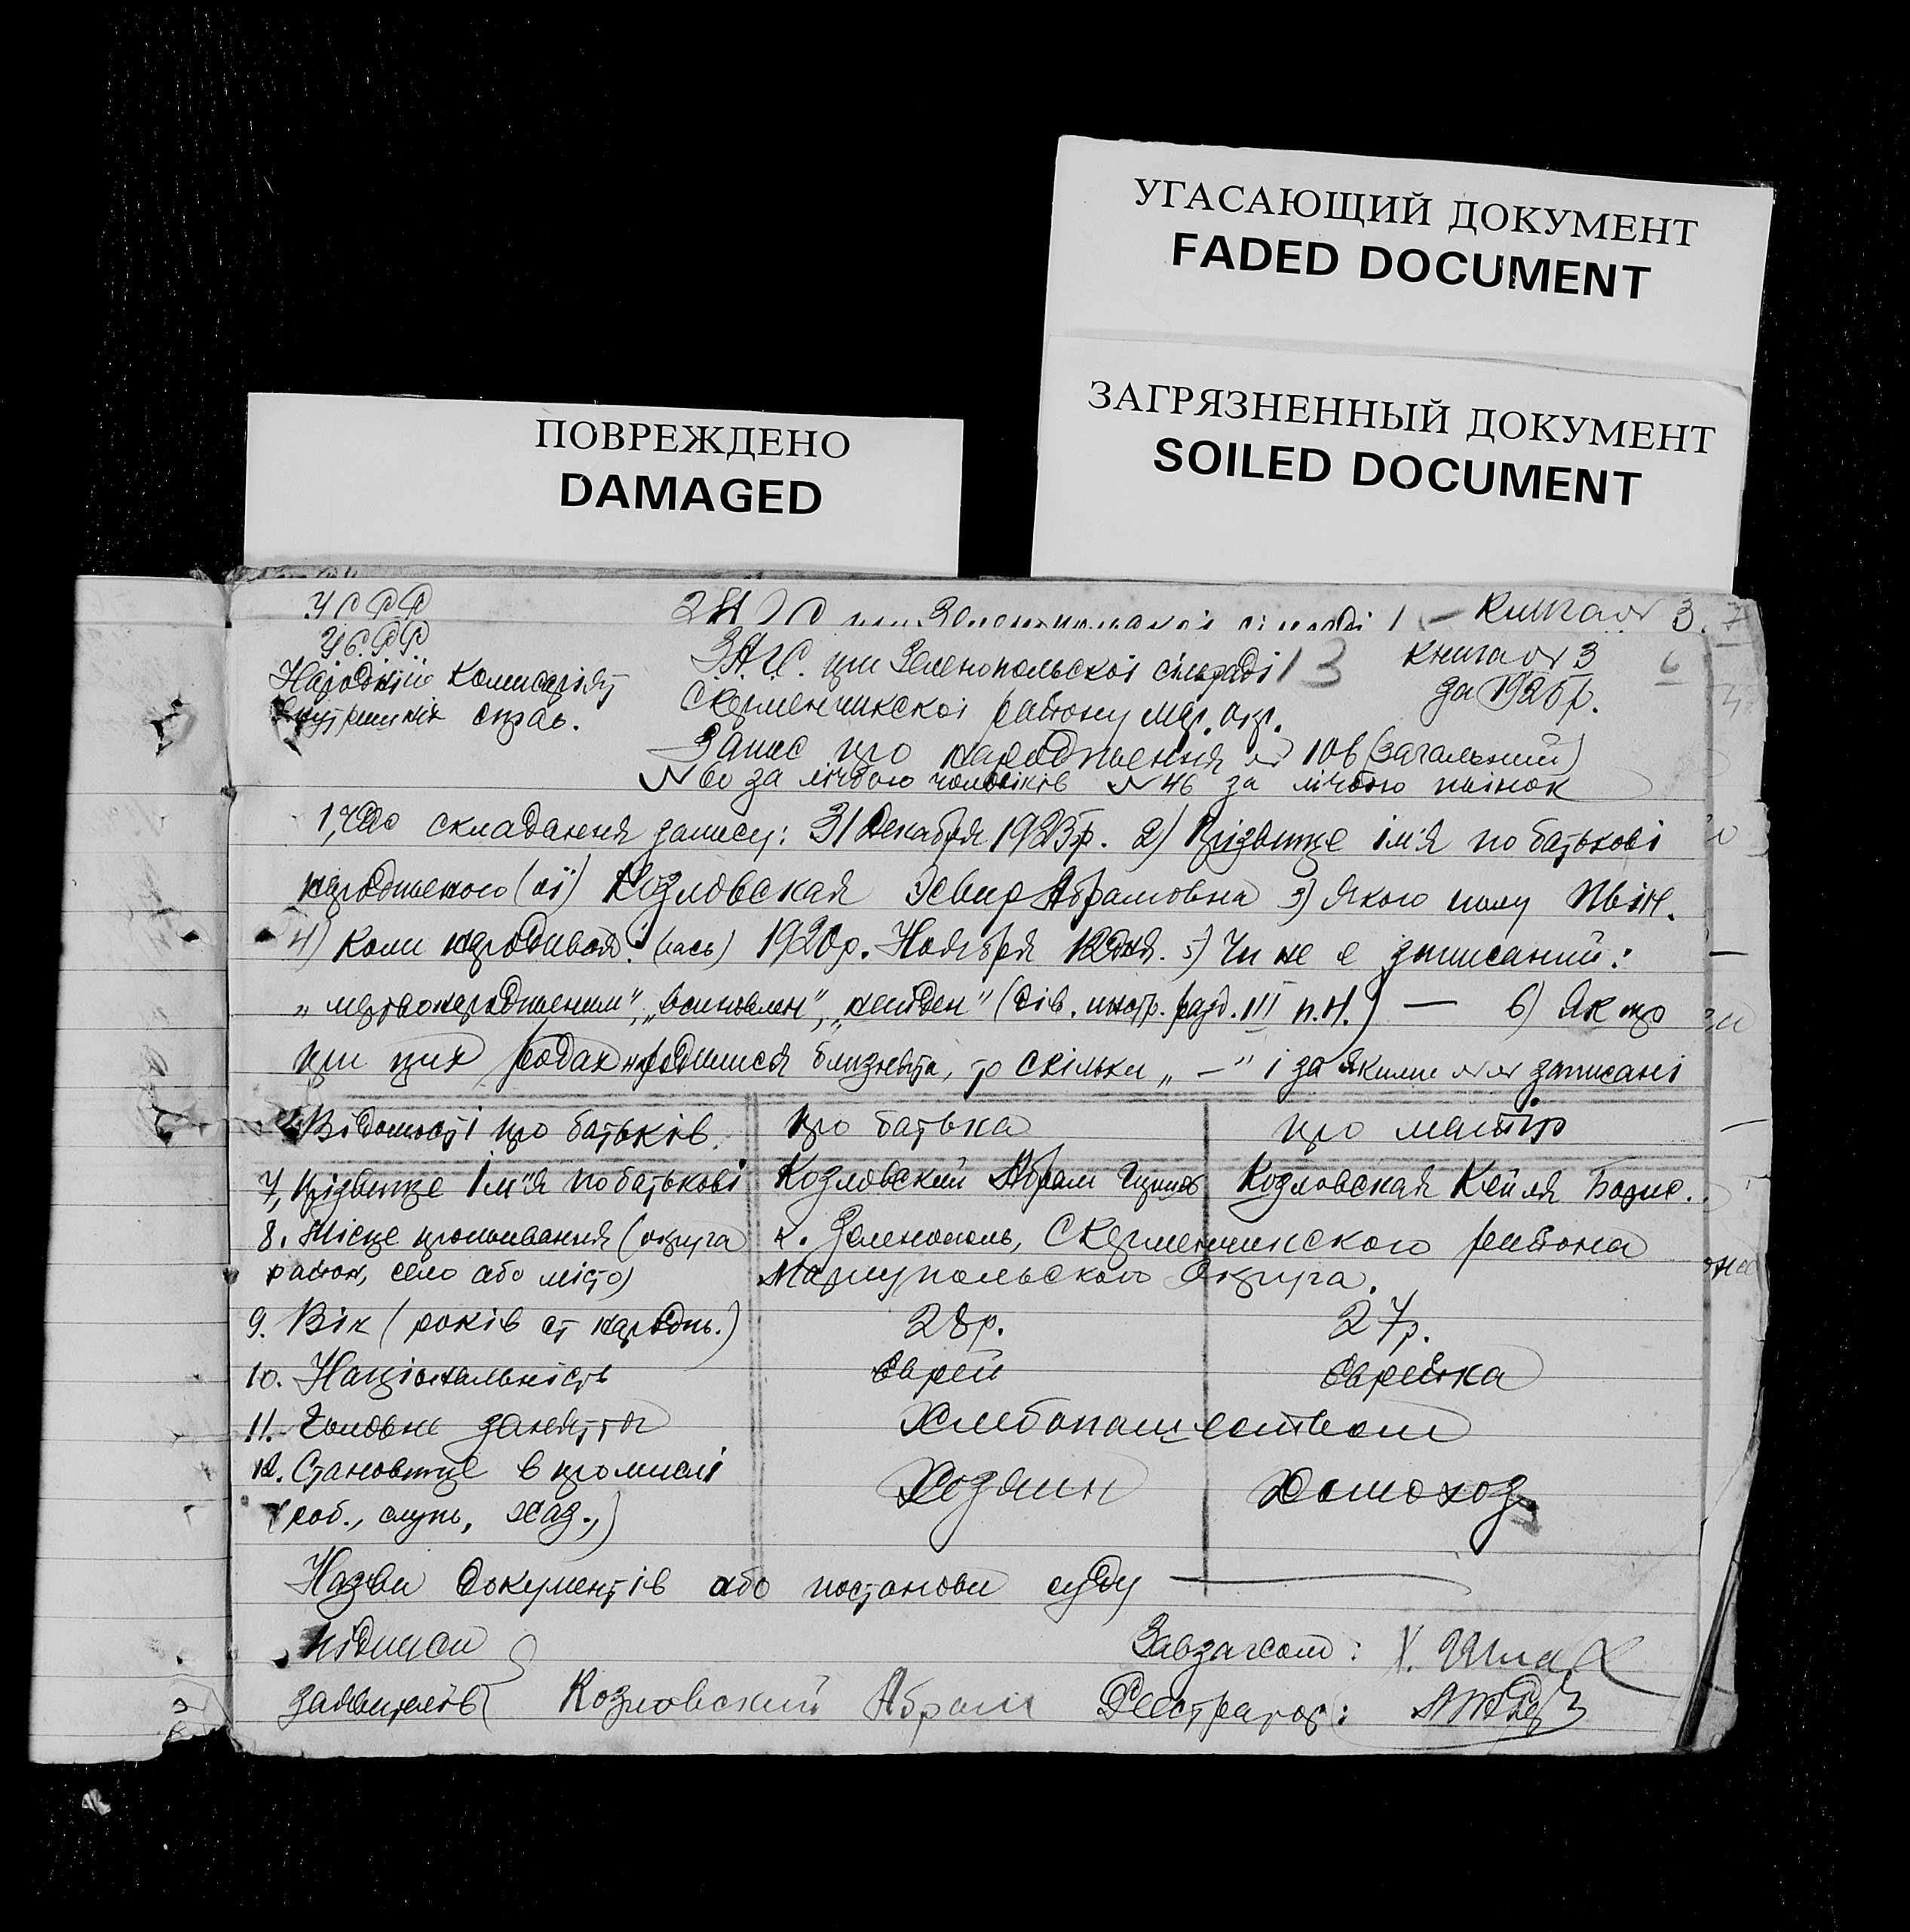 УГАСАЮЩИЙ ДОКУМЕНТ
FADED DOCUMENT
ЗАГРЯЗНЕННЫЙ ДОКУМЕНТ
SOILED DOCUMENT
ПОВРЕЖДЕНО
DAMAGED
УСРР
Книга № 3.
УСРР
Народній Комисаріят
Внутрішніх справ.
ЗАГС. при Зеленопольскоі сільраді 13
Скерменчикскоі району Мар. окр.
Книга № 3
за 1925р.
6
Запис про народження № 106 (загальний)
№ 60 за лічбою чоловіків № 46 за лічбою жінок
1, Час складання запису: 31 Декабря 1923р. 2) Прізвище ім'я по батькові
народженого (ої) Козловская Эсвир Абрамовна 3) Якого полу жін.
4) Коли народився (лась) 1920р. Ноября 12 дня. 5) Чи не є записаний:
„мертвонародженим", „всиновлен", „найден" (див. инстр. розд. III п.Н.) — 6) Як що
при цих родах народилися близнята, то скільки „—" і за якими №№ записані
Відомості про батьків.
про батька
про матір
7, Прізвище Ім'я по батькові
Козловский Абрам
Козловская Кейля Борис.
8. Місце проживання (округа
район, село або місто)
к. Зеленополь, Скерменчикского района
Мариупольского Округа.
9. Вік (років от народж.)
28р.
27р.
10. Національність
Еврей
Еврейка
11. Головне заняття
Хлебопашеством
12. Становище в промислі
(роб., служ, хаз.,)
Хозяин
Домохоз.
Назви документів або постанови суду —
Підписи
заявителів
Козловский Абрам
Завзагсом:
Реєстратор: